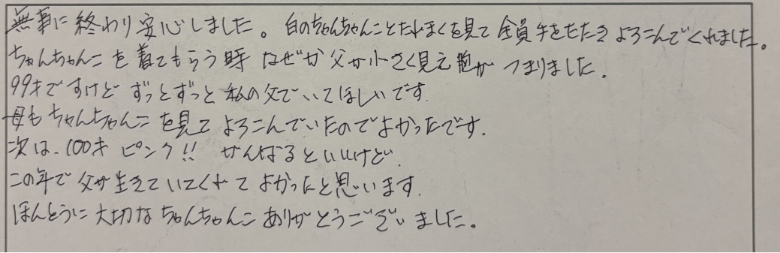 無事に終わり安心しました。白のちゃんちゃんことたれまくを見て全員手をたたきよろこんでくれました。
ちゃんちゃんこを着てもらう時 なぜか父が小さく見え胸がつまりました。
99才ですけど ずっとずっと私の父でいてほしいです
母もちゃんちゃんこを見てよろこんでいたのでよかったです。
次は、100才 ピンク!! せんなるといいけど
この年で父が生きていてくれてよかったと思います
ほんとうに大切なちゃんちゃんこありがとうございました。